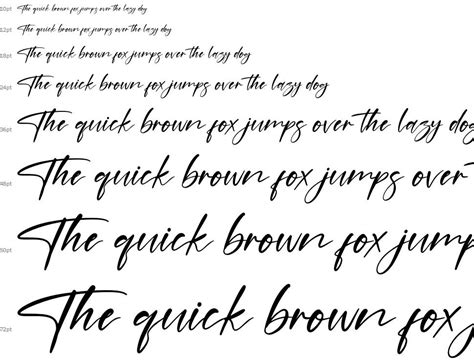 10pt The quick brown fox jumps over the lazy dog
12pt The quick brown fox jumps over the lazy dog
18pt The quick brown fox jumps over the lazy dog
24pt The quick brown fox jumps over the lazy dog
36pt The quick brown fox jumps over the lazy dog
48pt The quick brown fox jumps over
60pt The quick brown fox jump
72pt The quick brown fox j